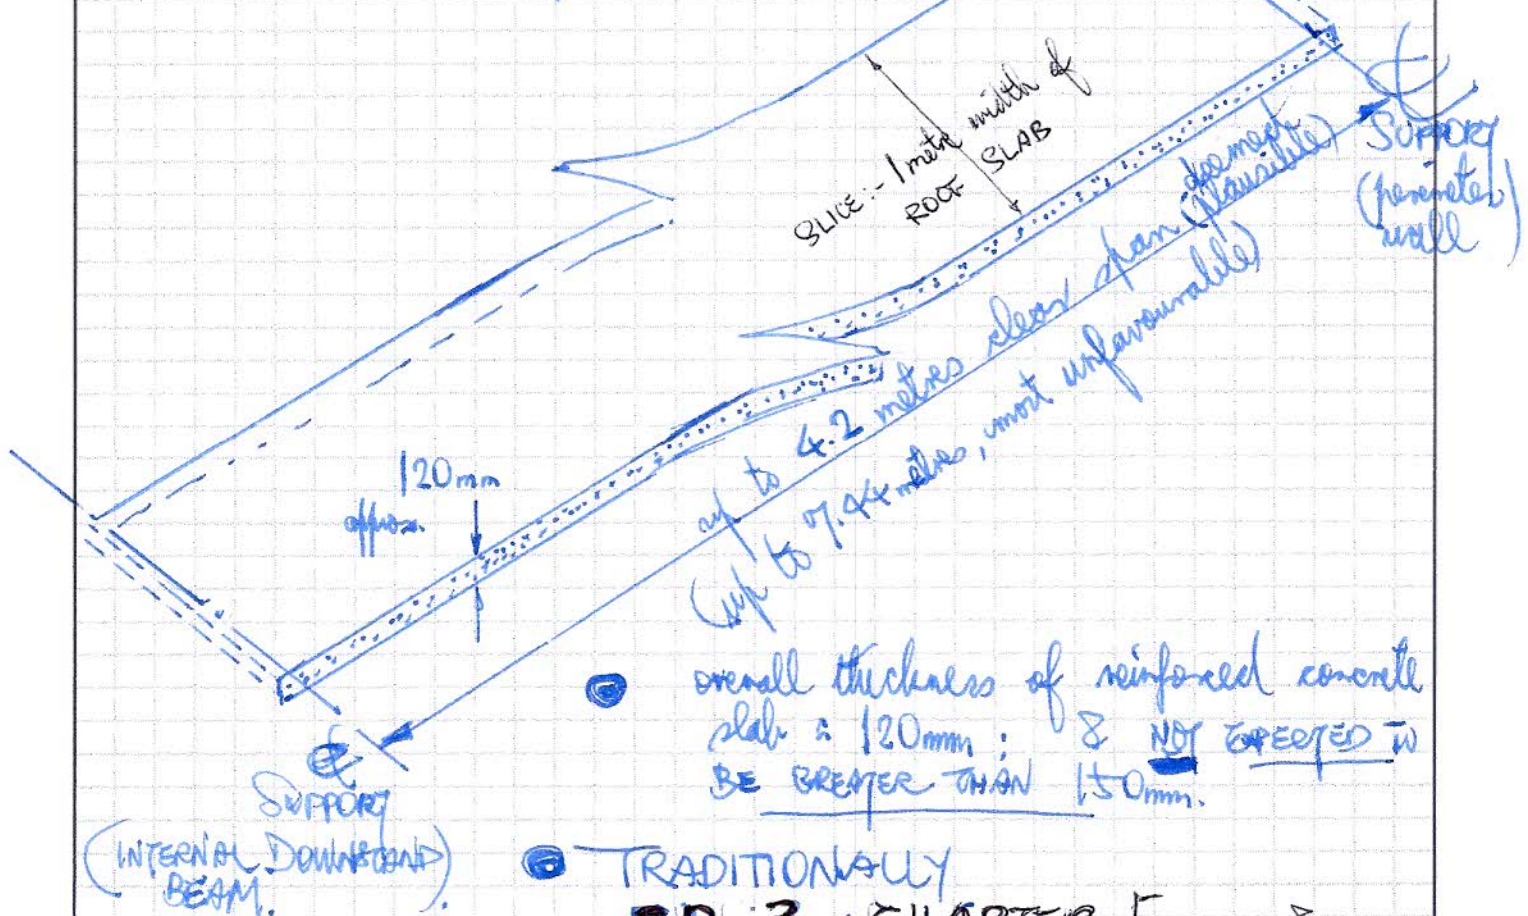 SLICE:- 1 metre width of
ROOF SLAB
SUPPORT
(perimeter
wall)
up to 4.2 metres clear span (deemed
plausible)
(up to 7.44 metres, most unfavourable)
120mm
approx.
overall thickness of reinforced concrete
slab ≈ 120mm; & NOT EXPECTED TO
BE GREATER THAN 150mm.
SUPPORT
(INTERNAL DOWNSTAND
BEAM.)
TRADITIONALLY
CHAPTER